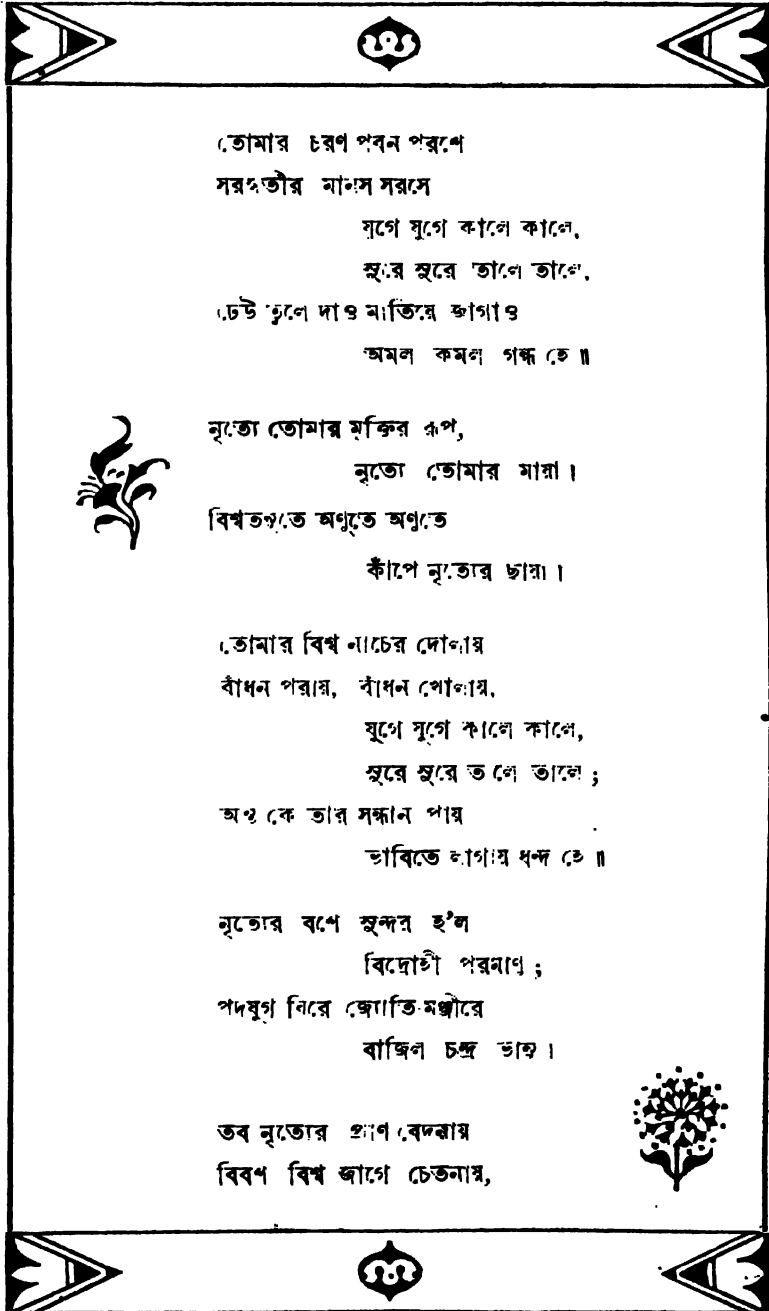 তোমার চরণ পবন পরশে
সরস্বতীর মানস সরসে
যুগে যুগে কালে কালে,
সুরে সুরে তালে তালে,
ঢেউ তুলে দাও মাতিয়ে জাগাও
অমল কমল গন্ধ হে॥
নৃত্যে তোমার মুক্তির রূপ,
নৃত্যে তোমার মায়া।
বিশ্বতনুতে অণুতে অণুতে
কাঁপে নৃত্যের ছায়া।
তোমার বিশ্ব নাচের দোলায়
বাঁধন পরায়, বাঁধন খোলায়,
যুগে যুগে কালে কালে,
সুরে সুরে তালে তালে;
অন্ত কে তার সন্ধান পায়
ভাবিতে লাগায় ধন্দ হে॥
নৃত্যের বশে সুন্দর হ'ল
বিদ্রোহী পরমাণু;
পদযুগ ঘিরে জ্যোতি-মঞ্জীরে
বাজিল চন্দ্র ভানু।
তব নৃত্যের প্রাণ বেদনায়
বিবশ বিশ্ব জাগে চেতনায়,